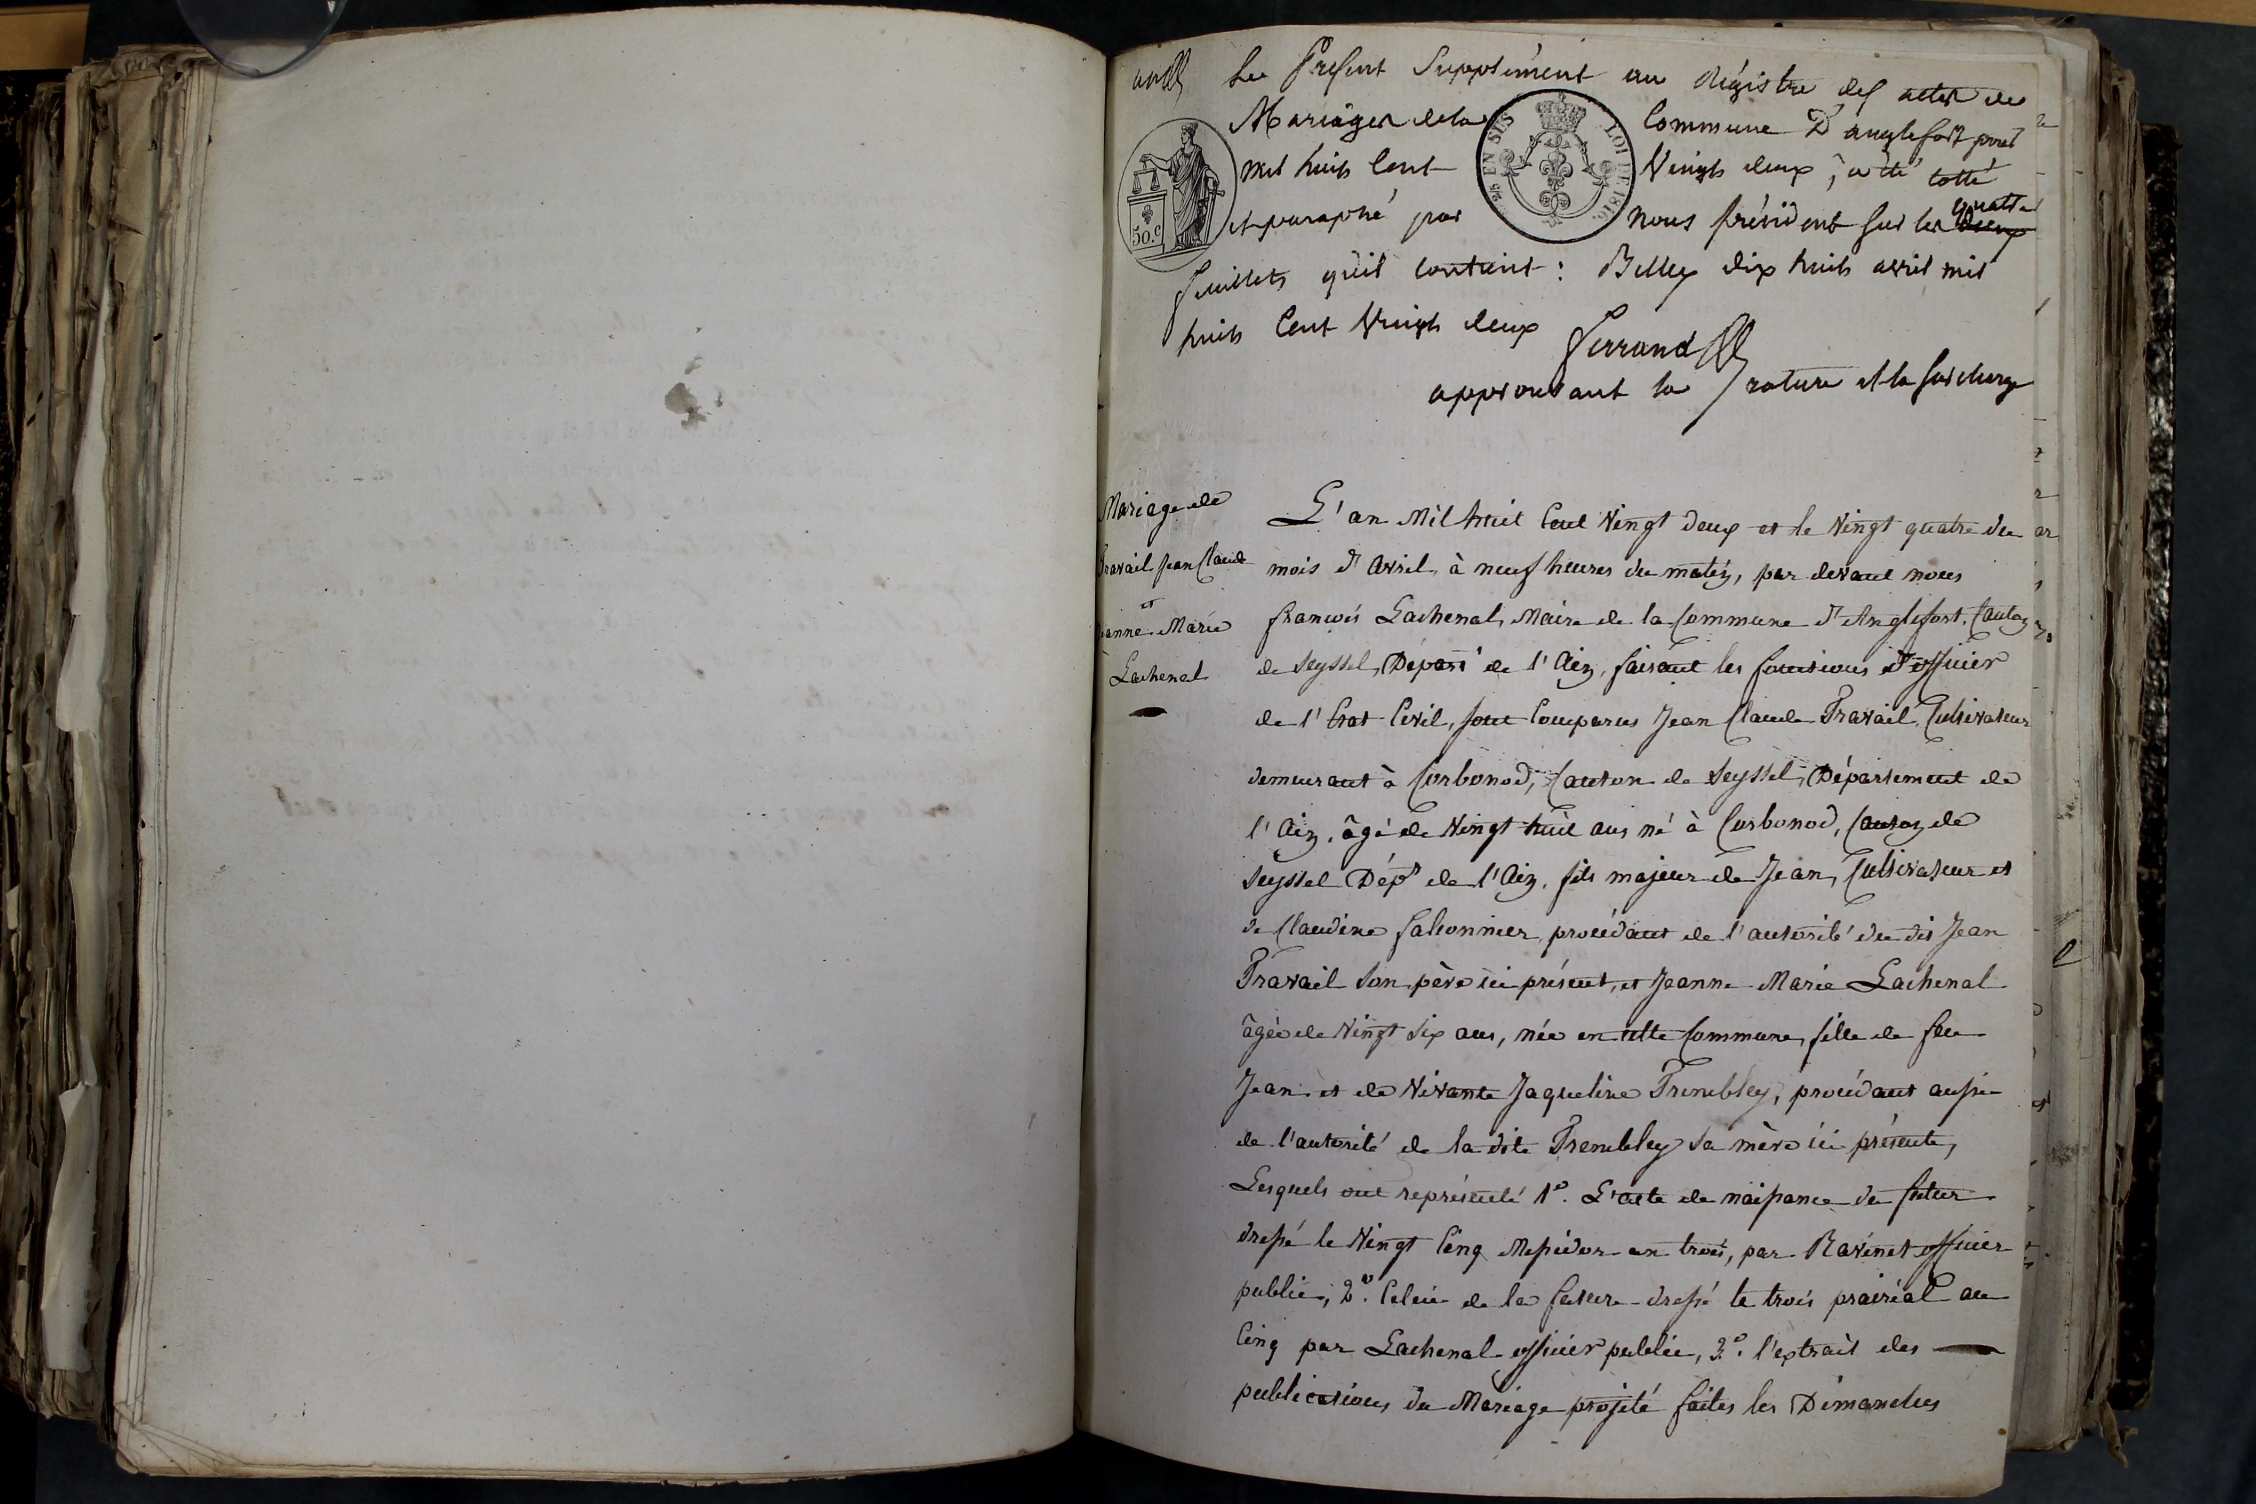 Le Présent Supplément au Régistre des actes de
Mariages de la Commune D'anglefort pour
mil huit Cent Vingt deux, a été cotté
et paraphé par nous président sur les quatre
feuillets qu'il contient : Belley dix huit avril mil
huit Cent Vingt deux
Ferrand
approuvant la rature et la surcharge
50.c
EN SUS
LOI DE 1816.
Mariage de
Travail Jean Claude
et
Jeanne Marie
Lachenal
L'an Mil huit Cent Vingt deux et le Vingt quatre du
mois d'Avril, à neuf heures du matin, par devant nous
françois Lachenal, Maire de la Commune d'Anglefort, Canton
de Seyssel, Départt de l'Ain, faisant les fonctions d'officier
de l'Etat Civil, sont Comparus Jean Claude Travail, Cultivateur
demeurant à Corbonod, Canton de Seyssel, Département de
l'Ain, âgé de Vingt huit ans né à Corbonod, Canton de
Seyssel Dépt de l'Ain, fils majeur de Jean, Cultivateur et
de Claudine falconnier, procédant de l'autorité du dit Jean
Travail son père ici présent, et Jeanne Marie Lachenal
âgée de Vingt Six ans, née en cette Commune, fille de feu
Jean et de Vivante Jaqueline Trembley, procédant aussi
de l'autorité de la dite Trembley sa mère ici présente,
Lesquels ont représenté 1o. L'acte de naissance du futur
dressé le Vingt Cinq Messidor an trois, par Ravinet officier
public, 2o. Celui de la future dressé le trois prairéal an
Cinq par Lachenal officier public, 3o. l'extrait des
publications du Mariage projeté faites les Dimanches